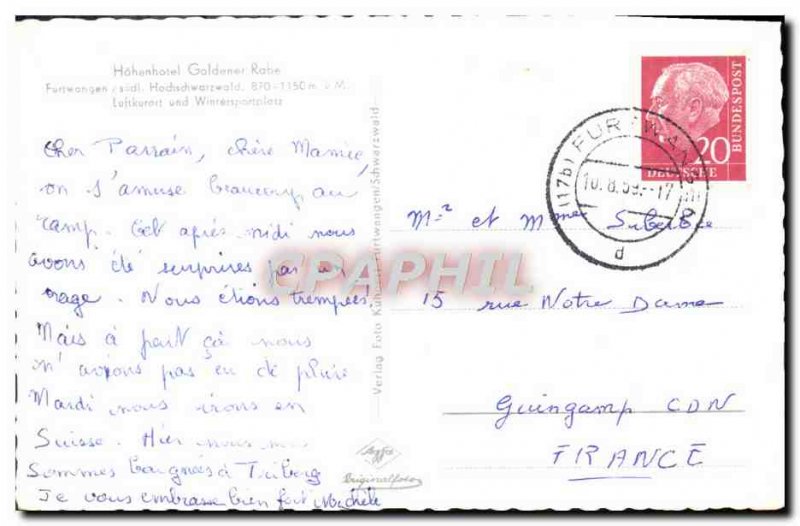 Höhenhotel Goldener Rabe
Furtwangen / südl. Hochschwarzwald, 870-1150 m ü. M.
Luftkurort und Wintersportplatz
Cher Parrain, chère Mamie,
on s'amuse beaucoup au
camp. Cet après midi nous
avons été surprises par un
orage. Nous étions trempées!
Mais à part ça nous
n'avions pas eu de pluie
Mardi nous irons en
Suisse. Hier nous
sommes baignées à Triberg
Je vous embrasse bien fort Michèle
Verlag Foto Furtwangen/Schwarzwald
Agfa
Originalfoto
CPAPHIL
20
DEUTSCHE
BUNDESPOST
(17b) FURTWANGEN
10.8.59.-17
d
Mr et Mme
15 rue Notre Dame
Guingamp CDN
FRANCE